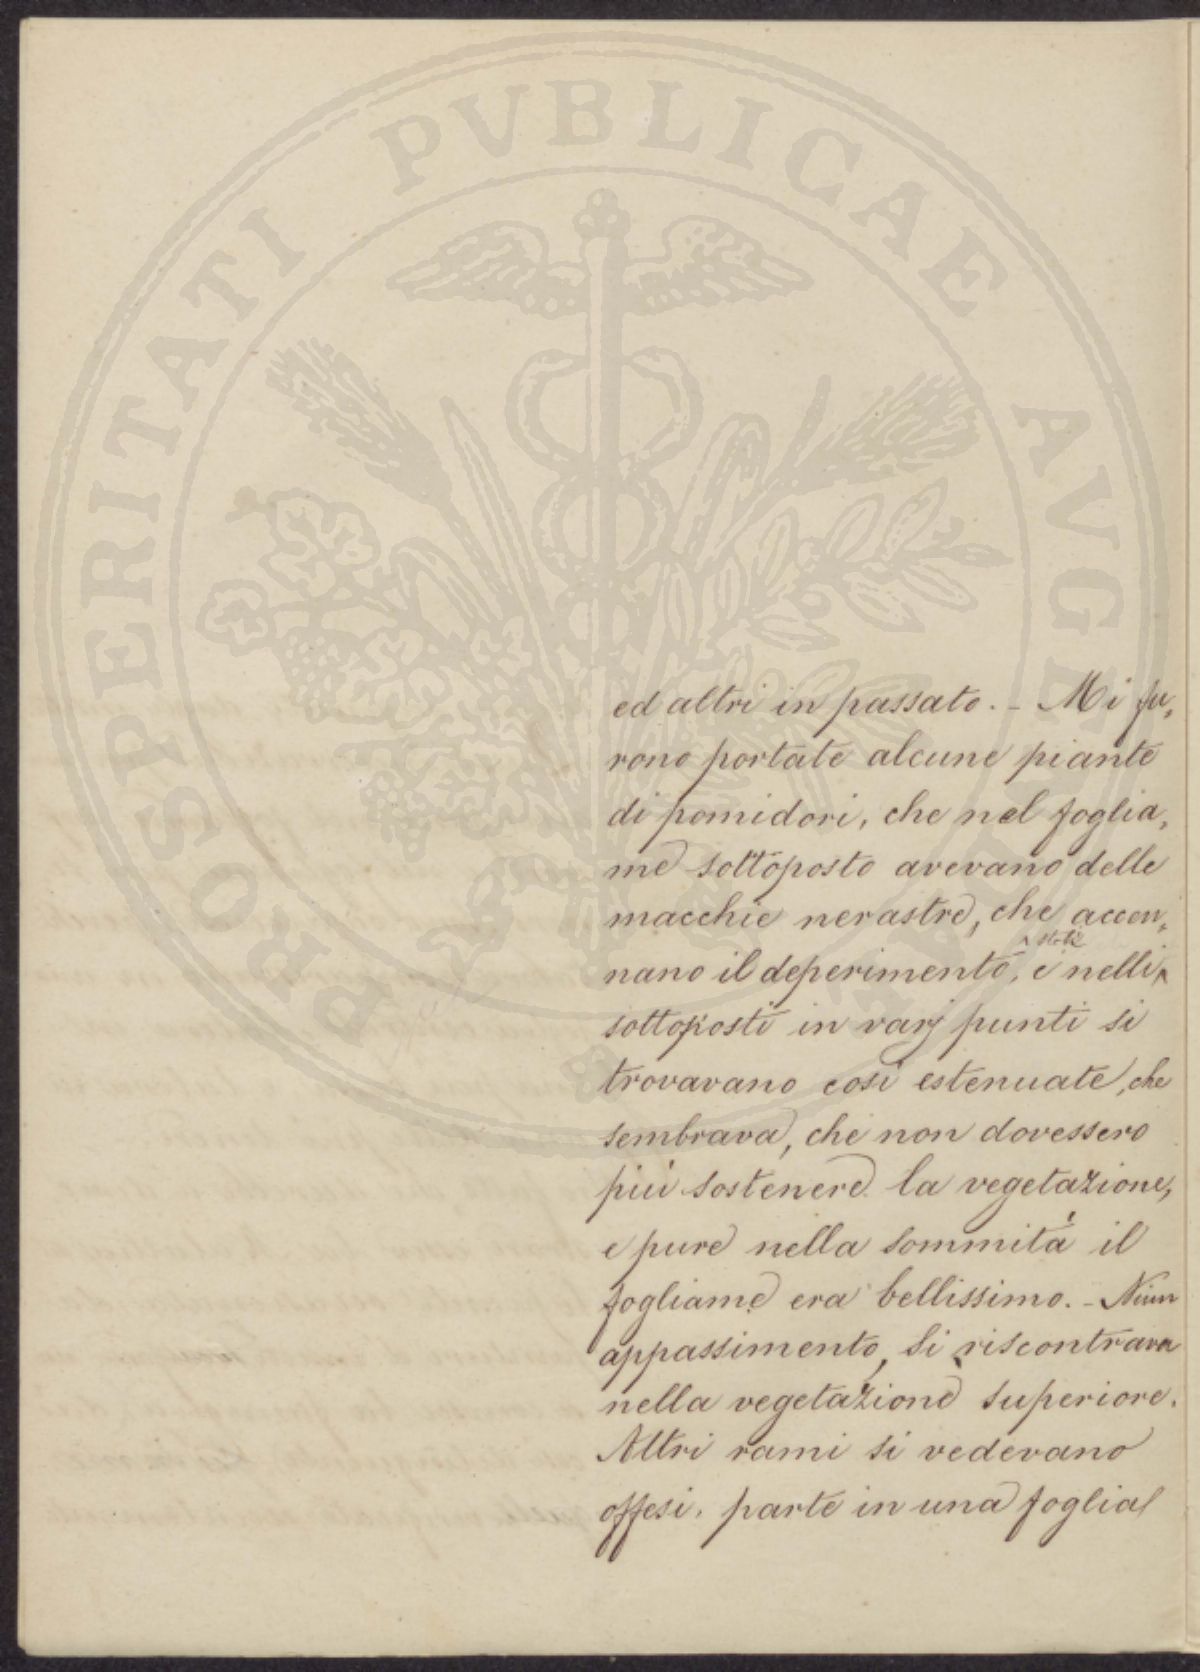 PROSPERITATI PVBLICAE AVGENDAE
ed altri in passato. - Mi fu,
rono portate alcune piante
di pomidori, che nel foglia,
me sottoposto avevano delle
macchie nerastre, che accen,
nano il deperimento, e nelli
steli
sottoposti in varj punti si
trovavano così estenuate, che
sembrava, che non dovessero
più sostenere la vegetazione,
e pure nella sommità il
fogliame era bellissimo. - Niun
appassimento, si riscontrava
nella vegetazione superiore.
Altri rami si vedevano
offesi, parte in una foglia